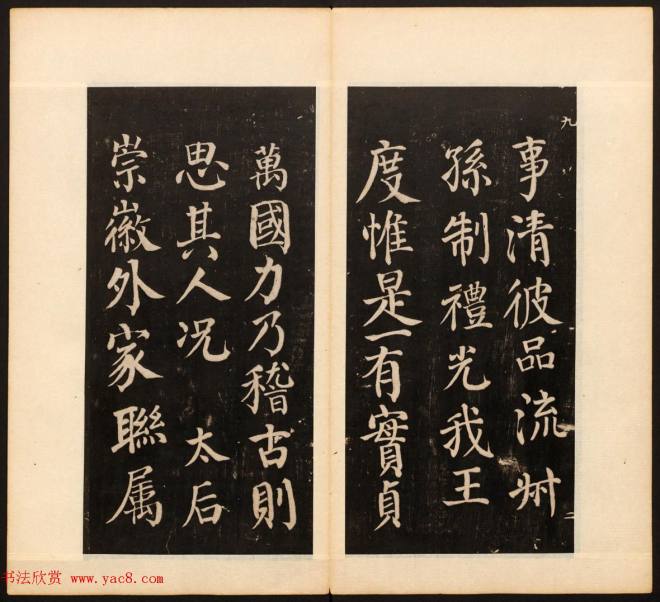 九
事清彼品流卅
孫制禮光我王
度惟是一有實貞
萬國力乃稽古則
思其人况 太后
崇徽外家聯属
书法欣赏 www.yac8.com